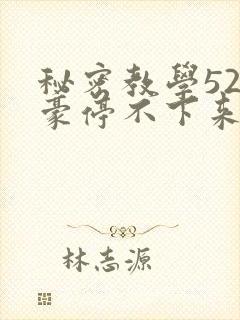 秘密教學52
豪停不下来
林志源